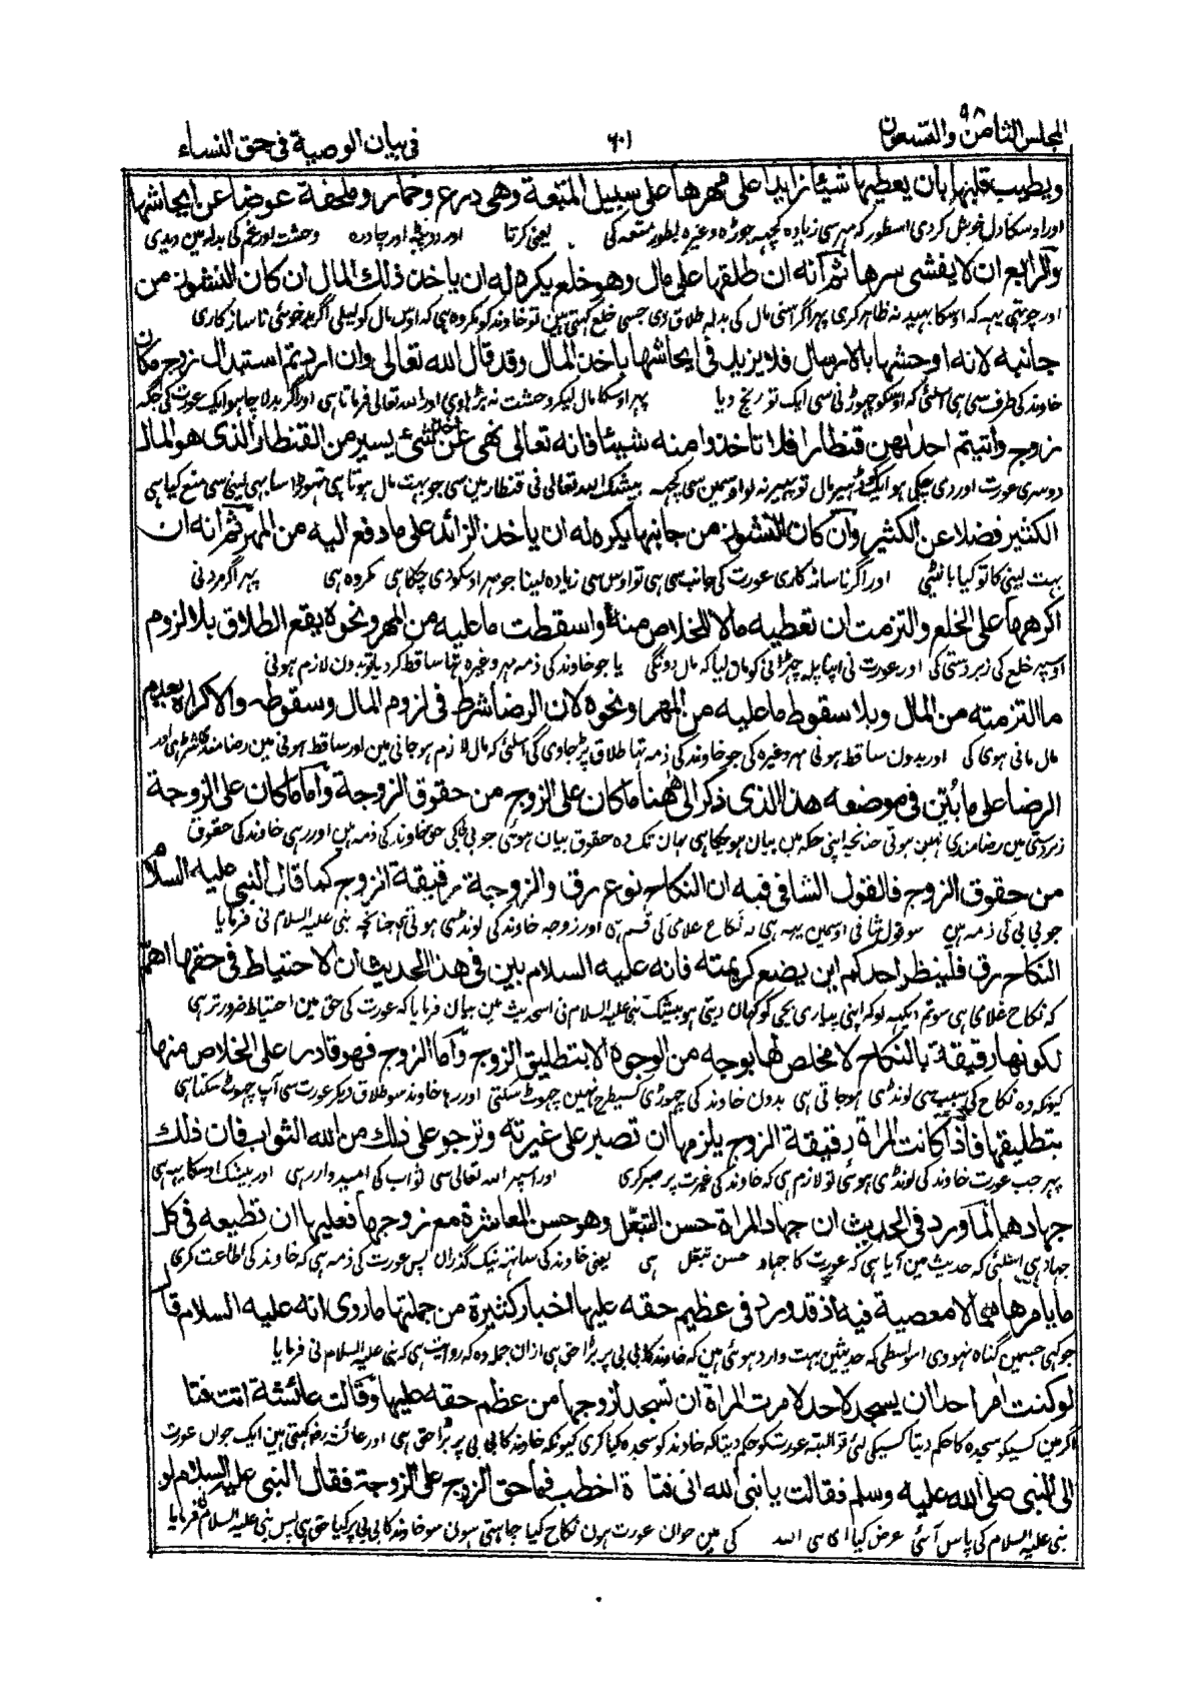 المجلس الثامن والتسعون ٩٨
٦٠١
فى بيان الوصية فى حق النساء
ويطيب قلبها بان يعطيها شيئا زايدا على مهرها على سبيل المتعة وهى درع وخمار وملحفة عوضا عن ايحاشها
اور اوسكا دل خوش كردى اسطور كہ مہر سى زيادہ كچہہ جوڑہ وغيرہ بطور متعہ كى يعنى كرتا اور دوپٹہ اور چادرہ وحشت اور غم كى بدلہ مين ديدى
والرابع ان لا يفشى سرها ثم انه ان طلقها على مال وهو خلع يكره له ان ياخذ ذلك المال ان كان النشوز من
اور چوتہى يہہ كہ اوسكا بہيد نہ ظاہر كرى پہر اگر اسنى مال كى بدلہ طلاق دى جسى خلع كہتى ہين تو خاوند كو مكروہ ہى كہ اوس مال كو ليلى اگر بدخوئى ناسازكارى
جانبه لانه اوحشها بالارسال فلا يزيد فى ايحاشها باخذ المال وقد قال الله تعالى وان اردتم استبدال زوج مكان
خاوند كى طرف سى ہى اسلئى كہ اوسكو چہوڑنى سى ايك تو رنج ديا پہر اوسكا مال ليكر وحشت نہ بڑہاوى اور اللہ تعالى فرماتا ہى اور اگر بدلا چاہو ايك عورت كى جگہ
زوج واتيتم احدٰىهن قنطارا فلا تاخذوا منه شيئا فانه تعالى نهى عن اخذ شئ يسير من القنطار الذى هو المال
دوسرى عورت اور دى چكى ہو ايك كو ڈہير مال تو پہير نہ لو اوسمين سى كچہہ بيشك اللہ تعالى نى قنطار مين سى جو بہت مال ہوتا ہى تہوڑا سا بہى لينى سى منع كيا ہى
الكثير فضلا عن الكثير وان كان النشوز من جانبها يكره له ان ياخذ الزائد على ما دفع اليه من المهر ثم انه ان
بہت لينى كا تو كيا اور اگر ناسازكارى عورت كى جانب سى ہى تو اوس سى زيادہ لينا جو مہر اوسكو دى چكا ہى مكروہ ہى پہر اگر مرد نى
اكرهها على الخلع والتزمت ان تعطيه مالا للخلاص منه او اسقطت ما عليه من المهر ونحوه يقع الطلاق بلا لزوم
اوسپر خلع كى زبردستى كى اور عورت نى اپنا پلہ چہڑانى كو مان ليا كہ مال دونگى يا جو خاوند كى ذمہ مہر وغيرہ تہا ساقط كرديا تو بدون لازم ہونى
ما التزمته من المال وبلا سقوط ما عليه من المهر ونحوه لان الرضا شرط فى لزوم المال وسقوطه والاكراه يعدم
مال مانى ہوى كى اور بدون ساقط ہونى مہر وغيرہ كى جو خاوند كى ذمہ تہا طلاق پڑجاوى گى اسلئى كہ مال لازم ہو جانى مين اور ساقط ہونى مين رضامندى شرط ہى اور
الرضا على ما بين فى موضعه هذا الذى ذكر الى ههنا ما كان على الزوج من حقوق الزوجة واما ما كان على الزوجة
زبردستى مين رضامندى نہين ہوتى چنانچہ اپنى جگہ مين بيان ہو چكا ہى يہان تك وہ حقوق بيان ہوئى جو بى بى كى حق خاوند كى ذمہ ہين اور رہى خاوند كى حقوق
من حقوق الزوج فالقول الشافى فيه ان النكاح نوع رق والزوجة رقيقة الزوج كما قال النبى عليه السلام
جو بى بى كى ذمہ ہين سو قول شافى اوسمين يہہ ہى كہ نكاح غلامى كى قسم ہى اور زوجہ خاوند كى لونڈى ہوتى ہى چنانچہ نبى عليہ السلام نى فرمايا
النكاح رق فلينظر احدكم اين يضع كريمته فانه عليه السلام بين فى هذا الحديث ان الاحتياط فى حقها اهم
كہ نكاح غلامى ہى سو تم ديكہہ لو كہ اپنى پيارى بچى كو كہان ديتى ہو بيشك نبى عليہ السلام نى اس حديث مين بيان فرمايا كہ عورت كى حق مين احتياط ضرورتر ہى
لكونها رقيقة بالنكاح لا مخلص لها بوجه من الوجوه الا بتطليق الزوج واما الزوج فهو قادر على الخلاص منها
كيونكہ وہ نكاح كى سبب سى لونڈى ہوجاتى ہى بدون خاوند كى چہوڑى كسيطرح نہين چہوٹ سكتى اور رہا خاوند سو طلاق ديكر عورت سى آپ چہوٹ سكتا ہى
بتطليقها فاذا كانت المراة رقيقة الزوج يلزمها ان تصبر على غيرته وترجو على ذلك من الله الثواب فان ذلك
پہر جب عورت خاوند كى لونڈى ہوئى تو لازم ہى كہ خاوند كى غيرت پر صبر كرى اور اسپر اللہ تعالى سى ثواب كى اميدوار رہى اور بيشك اوسكا يہہ ہى
جهادها لما ورد فى الحديث ان جهاد المراة حسن التبعل وهو حسن المعاشرة مع زوجها فعليها ان تطيعه فى كل
جہاد ہى اسلئى كہ حديث مين آيا ہى كہ عورت كا جہاد حسن تبعل ہى يعنى خاوند كى ساتہہ نيك گذران پس عورت كى ذمہ ہى كہ خاوند كى اطاعت كرى
ما يامرها مما لا معصية فيه اذ قد ورد فى عظيم حقه عليها اخبار كثيرة من جملتها ما روى انه عليه السلام قال
جو كہى جسمين گناہ نہووى اسواسطى كہ حديثين بہت وارد ہوئى ہين كہ خاوند كا بى بى پر بڑا حق ہى ازان جملہ وہ كہ روايت ہى كہ نبى عليہ السلام نى فرمايا
لو كنت امر احدا ان يسجد لاحد لامرت المراة ان تسجد لزوجها من عظم حقه عليها وقالت عائشة اتت فتاة
اگر مين كسيكو سجدہ كا حكم ديتا كسيكى لئى تو البتہ عورت كو حكم ديتا كہ خاوند كو سجدہ كيا كرى كيونكہ خاوند كا بى بى پر بڑا حق ہى اور عائشہ رضہ كہتى ہين ايك جوان عورت
الى النبى صلى الله عليه وسلم فقالت يا نبى الله انى فتاة اخطب فما حق الزوج على الزوجة فقال النبى عليه السلام لو
نبى عليہ السلام كى پاس آئى عرض كيا اى نبى اللہ كى مين جوان عورت ہون نكاح كيا چاہتى ہون سو خاوند كا بى بى پر كيا حق ہى پس نبى عليہ السلام نى فرمايا